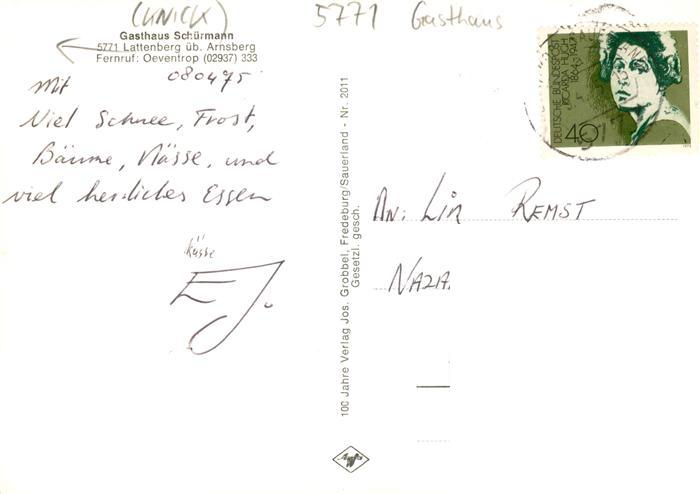 (KNICK)
5771 Gasthaus
Gasthaus Schürmann
5771 Lattenberg üb. Arnsberg
Fernruf: Oeventrop (02937) 333
080475
Mit
Viel Schnee, Frost,
Bäume, Nässe, und
viel herrliches Essen
Küsse
EJ.
100 Jahre Verlag Jos. Grobbel, Fredeburg/Sauerland - Nr. 2011
Gesetzl. gesch.
DEUTSCHE BUNDESPOST
RICARDA HUCH
1864-1947
40
An: LIR REMST
NAZA.